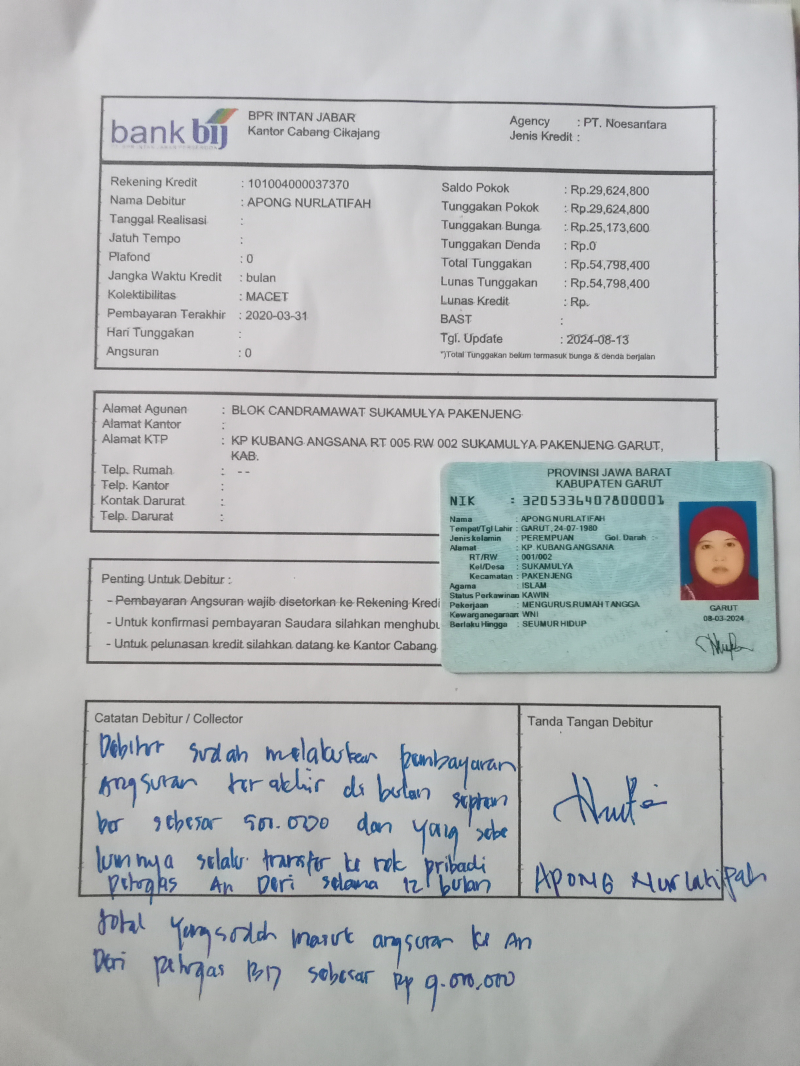 bank bij
BPR INTAN JABAR
Kantor Cabang Cikajang
Agency : PT. Noesantara
Jenis Kredit :
Rekening Kredit : 101004000037370
Nama Debitur : APONG NURLATIFAH
Tanggal Realisasi :
Jatuh Tempo :
Plafond : 0
Jangka Waktu Kredit : bulan
Kolektibilitas : MACET
Pembayaran Terakhir : 2020-03-31
Hari Tunggakan :
Angsuran : 0
Saldo Pokok : Rp.29,624,800
Tunggakan Pokok : Rp.29,624,800
Tunggakan Bunga : Rp.25,173,600
Tunggakan Denda : Rp.0
Total Tunggakan : Rp.54,798,400
Lunas Tunggakan : Rp.54,798,400
Lunas Kredit : Rp.
BAST :
Tgl. Update : 2024-08-13
*)Total Tunggakan belum termasuk bunga & denda berjalan
Alamat Agunan : BLOK CANDRAMAWAT SUKAMULYA PAKENJENG
Alamat Kantor :
Alamat KTP : KP KUBANG ANGSANA RT 005 RW 002 SUKAMULYA PAKENJENG GARUT,
KAB.
Telp. Rumah : --
Telp. Kantor :
Kontak Darurat :
Telp. Darurat :
PROVINSI JAWA BARAT
KABUPATEN GARUT
NIK : 3205336407800001
Nama : APONG NURLATIFAH
Tempat/Tgl Lahir : GARUT, 24-07-1980
Jenis kelamin : PEREMPUAN Gol. Darah -
Alamat : KP KUBANG ANGSANA
RT/RW : 001/002
Kel/Desa : SUKAMULYA
Kecamatan : PAKENJENG
Agama : ISLAM
Status Perkawinan: KAWIN
Pekerjaan : MENGURUS RUMAH TANGGA
Kewarganegaraan: WNI
Berlaku Hingga : SEUMUR HIDUP
GARUT
08-03-2024
Penting Untuk Debitur :
- Pembayaran Angsuran wajib disetorkan ke Rekening Kredi
- Untuk konfirmasi pembayaran Saudara silahkan menghubu
- Untuk pelunasan kredit silahkan datang ke Kantor Cabang
Catatan Debitur / Collector
Debitur sudah melakukan pembayaran
Angsuran terakhir di bulan septem
ber sebesar 500.000 dan yang sebe
lumnya selalu transfer ke rek pribadi
petugas An Deri selama 12 bulan
total yang sudah masuk angsuran ke An
Deri petugas BIJ sebesar Rp 9.000.000
Tanda Tangan Debitur
APONG Nurlatipah